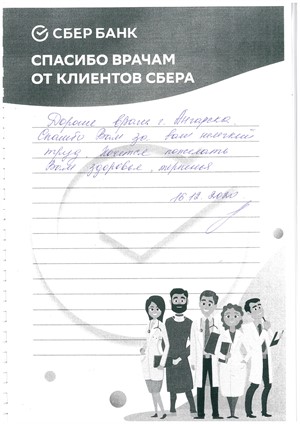 СБЕР БАНК
СПАСИБО ВРАЧАМ
ОТ КЛИЕНТОВ СБЕРА
Дорогие врачи г. Ангарска
Спасибо Вам за ваш нелегкий
труд Хочется пожелать
Вам здоровья, терпения
16.12.2020